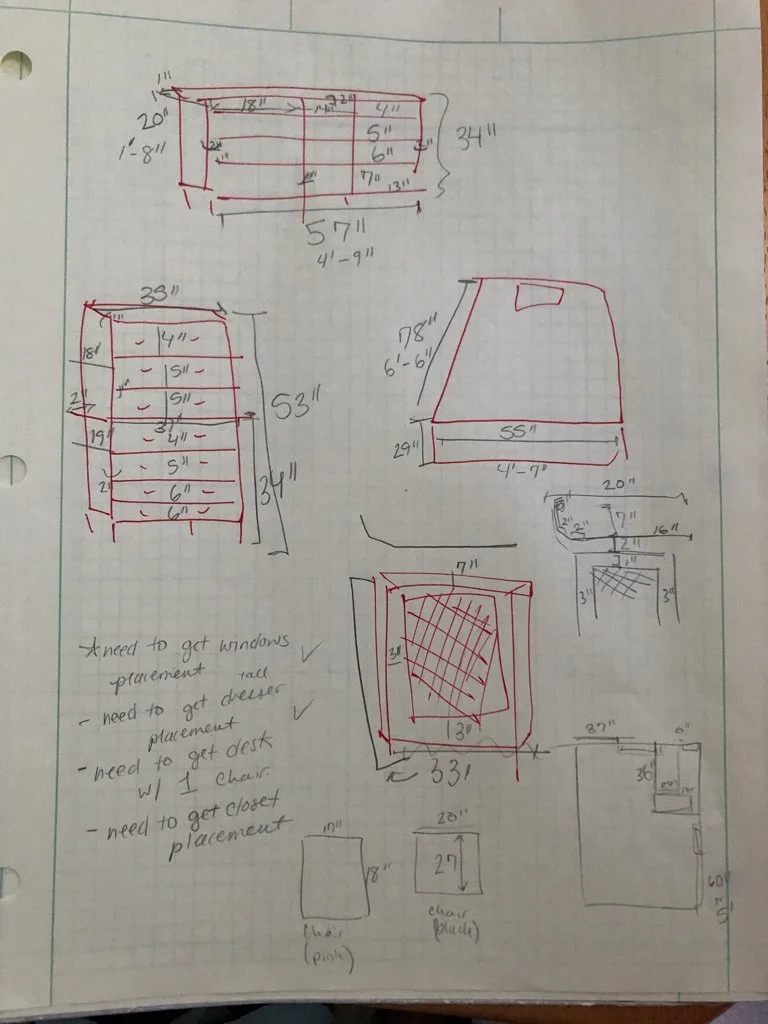 1"
20"
1'-8"
18"
4"
5"
6"
7"
13"
34"
57"
4'-9"
18"
4"
5"
5"
2"
37"
19"
4"
5"
6"
6"
2"
53"
34"
78"
6'-6"
29"
55"
4'-7"
20"
7"
2"
16"
2"
3"
3"
7"
3"
13"
33"
*need to get windows
placement ✓
tall
- need to get dresser
placement ✓
- need to get desk
w/ 1 chair.
- need to get closet
placement
18"
chair
(pink)
20"
27
chair
(black)
37"
36"